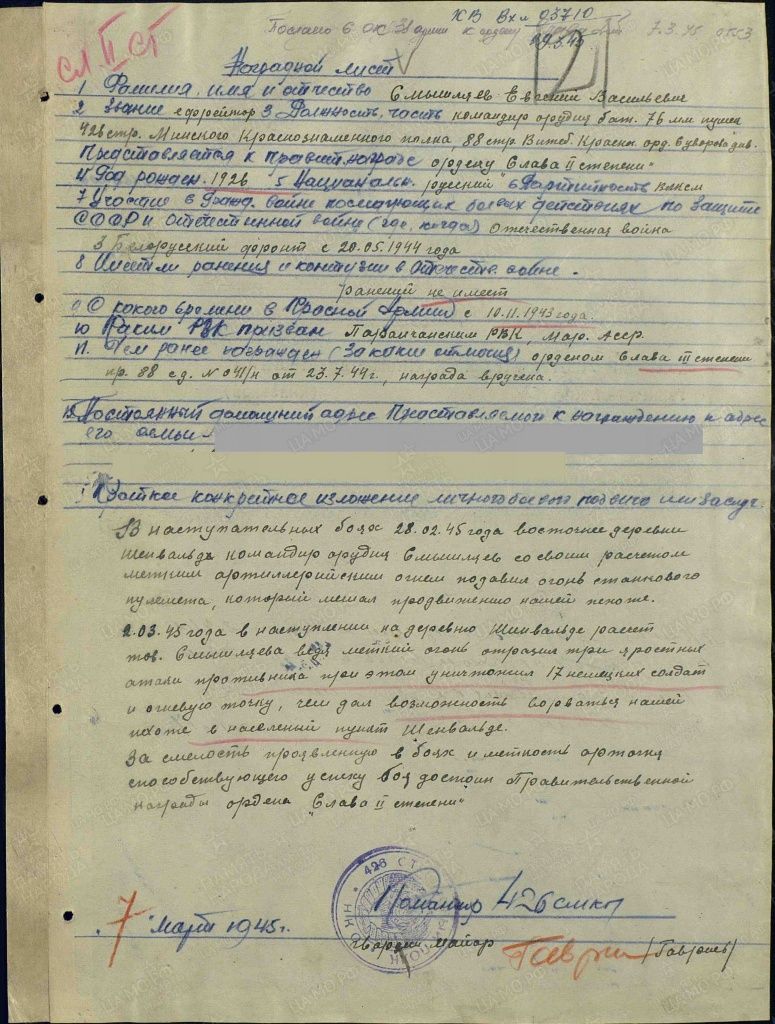 КВ Вхл 03710
Послано в ок 3В армии к ордену 7.3.45 0553
19.3.45
Сл. II СТ
Наградной лист
2
1 Фамилия, имя и отчество Смышляев Евгений Васильевич
2 Звание ефрейтор 3 Должность, часть командир орудия бат. 76 мм пушек
426 стр. Минского Краснознаменного полка, 88 стр. Витеб. Красноз. орд. Суворова див.
Представляется к правит. награде ордену „Слава II степени"
4 Год рожден. 1926 5 Национальн. русский 6 Партийность ВЛКСМ
7 Участие в гражд. войне последующих боевых действиях по защите
СССР и отечественной войне (где, когда) Отечественная война
3 Белорусский фронт с 20.05.1944 года
8 Имеет ли ранения и контузии в отечеств. войне.
ранений не имеет
9 С какого времени в Красной Армии с 10.11.1943 года.
10 Каким РВК призван РВК, Мар. Асср.
11. Чем ранее награжден (за какие отличия) орденом Слава III степени
пр. 88 сд. № 041/н от 23.7.44г., награда вручена.
12 Постоянный домашний адрес Представляемого к награждению и адрес
его семьи
Краткое конкретное изложение личного боевого подвига или заслуг.
В наступательных боях 28.02.45 года восточнее деревни
Шенвальде командир орудия Смышляев со своим расчетом
метким артиллерийским огнем подавил огонь станкового
пулемета, который мешал продвижению нашей пехоте.
2.03.45 года в наступлении на деревню Шенвальде расчет
тов. Смышляева ведя меткий огонь отразил три яростных
атаки противника при этом уничтожил 17 немецких солдат
и огневую точку, чем дал возможность ворваться нашей
пехоте в населеный пункт Шенвальде.
За смелость проявленную в боях и меткость артогня
способствующего успеху боя достоин Правительственной
награды ордена „Слава II степени"
Командир 426 СМКП
„7" март 1945г.
гвардии майор Гаври (Гаврильев)
НКО 426 СТ
ЦАМО РФ